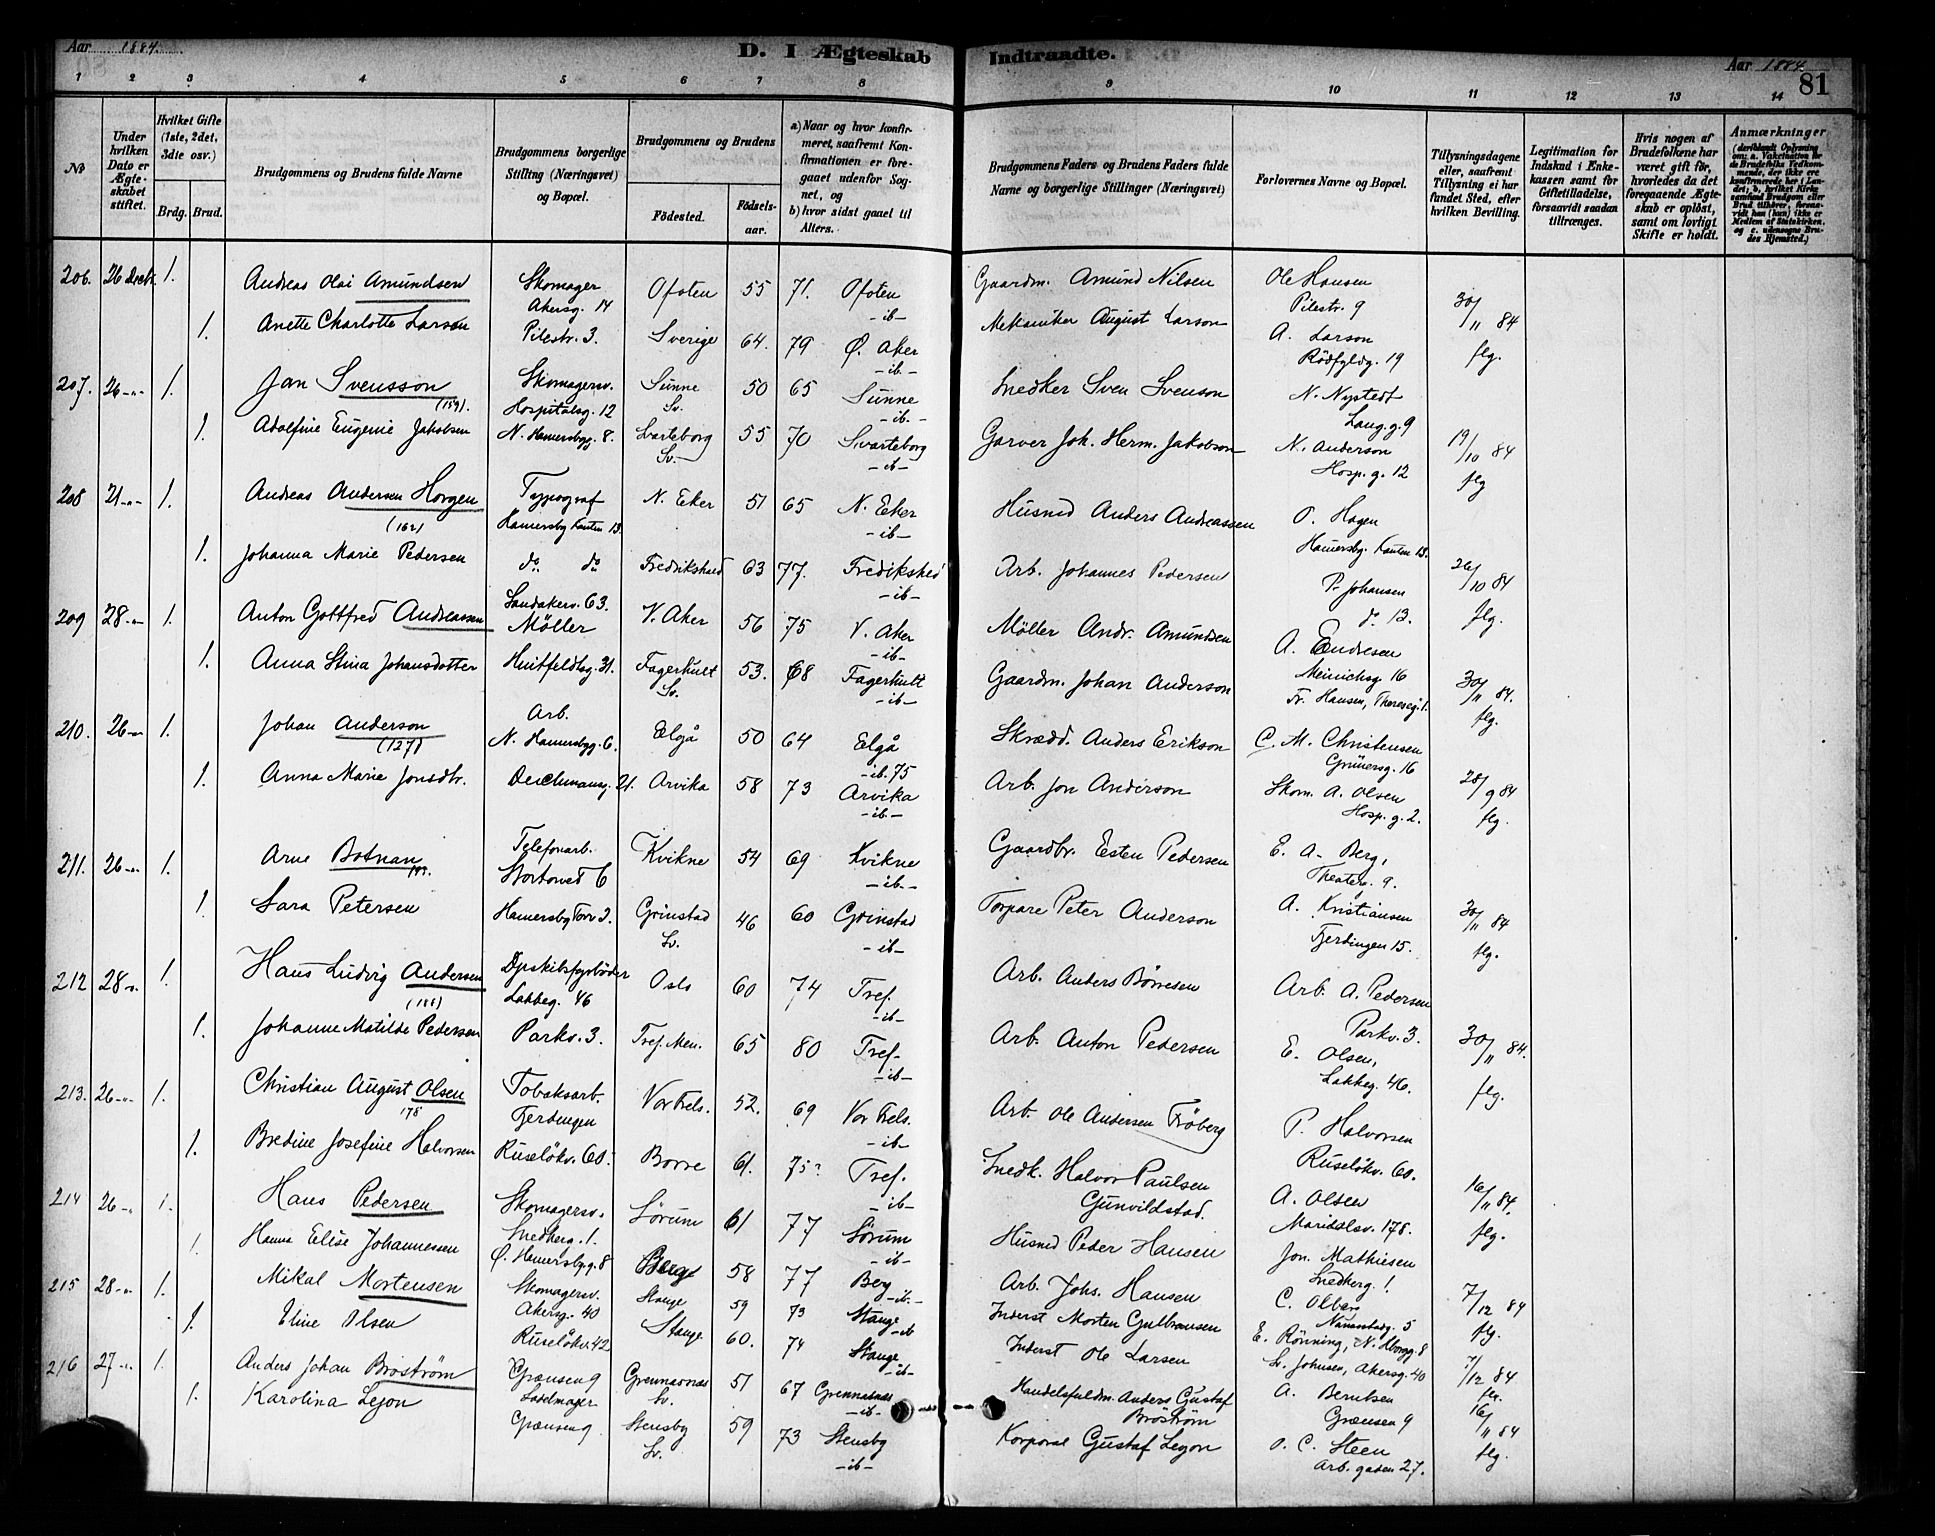 Aar 1884.
D. I Ægteskab Indtraadte.
Aar 1884.
81
1 2 3 4 5 6 7 8 9 10 11 12 13 14
No
Under hvilken Dato er Ægteskabet stiftet.
Hvilket Gifte (1ste, 2det, 3die osv.)
Brdg. Brud.
Brudgommens og Brudens fulde Navne
Brudgommens borgerlige Stilling (Næringsvei) og Bopæl.
Brudgommens og Brudens
Födested.
Födselsaar.
a) Naar og hvor konfirmeret, saafremt Konfirmationen er foregaaet udenfor Sognet, og
b) hvor sidst gaaet til Alters.
Brudgommens Faders og Brudens Faders fulde Navne og borgerlige Stillinger (Næringsvei)
Forlovernes Navne og Bopæl.
Tillysningsdagene eller, saafremt Tillysning ei har fundet Sted, efter hvilken Bevilling.
Legitimation for Indskud i Enkekassen samt for Giftetilladelse, forsaavidt saadan tiltrænges.
Hvis nogen af Brudefolkene har været gift för, hvorledes da det foregaaende Ægteskab er oplöst, samt om lovligt Skifte er holdt.
Anmærkninger
206. 26 Decbr. 1. Andreas Olai Amundsen Skomager Akersg. 14 Ofoten 55 71. Ofoten -ib- Gaardm. Amund Nilsen Ole Hansen Pilestr. 9 30/11 84
1. Anette Charlotte Larson Pilestr. 3. Sverige 64. 79 Ø. Aker -ib- Mekaniker August Larson A. Larson Rödfyldg. 19 flg.
207. 26-"- 1. Jan Svensson (159). Skomagersv. Hospitalsg. 12 Sunne Sv. 50 65 Sunne -ib- Snedker Sven Svenson N. Nystedt Laug. g. 9
1. Adolfine Eugenie Jakobsen N. Hamersbyg. 8. Svarteborg Sv. 55 70 Svarteborg -ib- Garver Joh. Herm. Jakobson N. Anderson Hosp. g. 12 19/10 84 flg
208 21-"- 1. Andreas Andersen Horgen (162) Typograf Hamersby Kauten 13. N. Eker 51 65 N. Eker -ib- Husmd Anders Andreassen O. Hagen Hamersby. Kauten 13.
1. Johanna Marie Pedersen do do Fredrikshald 63 77. Fredikshld -ib- Arb. Johannes Pedersen P. Johansen do 13. 26/10 84 flg.
209 28-"- 1. Anton Gottfred Andreassen Sandakerv. 63. Möller V. Aker 56 75 V. Aker -ib- Møller Andr. Amundsen A. Endresen Meinichsg 16
1. Anna Stina Johansdotter Huitfeldtsg. 31. Fagerhult Sv. 53. 68 Fagerhult -ib- Gaardm. Johan Anderson Fr. Hansen, Theresesg. 1. 30/11 84. flg.
210. 26-"- 1. Johan Anderson (127) Arb. N. Hamersbyg. 6. Elgå 50 64 Elgå -ib. 75 Skrædd. Anders Erikson C. M. Christensen Grünersg. 16
1. Anna Marie Jonsdtr. Deichmansg. 21. Arvika 58 73 Arvika -ib- Arb. Jon Anderson Skom. A. Olsen Hosp. g. 2. 28/9 84 flg.
211. 26-"- 1. Arne Botnan Telefonarb. Stortorvet 6 Kvikne 54 69 Kvikne -ib- Gaardbr. Esten Pedersen E. A. Berg, Theaterg. 9.
1. Sara Petersen Hamersby Torv 3. Grinstad Sv. 46 60 Grinstad -ib- Torpare Peter Anderson A. Kristiansen Fjerdingen 15. 30/11 84 flg.
212 28-"- 1. Hans Ludvig Andersen Dpskibsfyrböder Lakkeg. 46 Oslo 60 74 Tref. -ib- Arb. Anders Börresen Arb. A. Pedersen Parkv. 3.
1. Johanne Matilde Pedersen Parkv. 3. Tref. Men. 65 80 Tref. -ib- Arb. Anton Pedersen E. Olsen, Lakkeg. 46. 30/11 84. flg.
213. 26-"- 1. Christian August Olsen 178 Tobaksarb. Fjerdengen Vor Frels. 52. 69 Vor Frels. -ib- Arb. Ole Andersen Fröberg P. Halvorsen Ruselökv. 60.
1. Bredine Josefine Halvorsen Ruselökv. 60. Borre 61. 75 Tref. -ib- Snedk. Halvor Paulsen Gunvildstad. A. Olsen Maridalsv. 178. 16/11 84. flg.
214 26-"- 1. Hans Pedersen Skomagersv. Snedkerg. 1. Sörum 61 77 Sörum -ib- Husmd Peder Hansen Jon. Mathiesen Snedkerg. 1.
1. Hanna Elise Johannessen Ø. Hamersbyg. 8 Berg 58 77 Berg -ib- Arb. Johs. Hansen C. Olsen Nannestadg. 5 7/12 84 flg.
215 28-"- 1. Mikal Mortensen Skomagersv. Akersg. 40 Stange 59 73 Stange -ib Inderst Morten Gulbransen E. Rönning, N. Hbergg. 8
1. Eline Olsen Ruselökv. 42 Stange 60. 74 Stange -ib- Inderst Ole Larsen Sv. Johnsen, Akersg. 40 7/12 84 flg.
216 27-"- 1. Anders Johan Broström Grænsen 9 Sadelmager Grennanäs Sv. 51 67 Grennanäs -ib- Handelsfuldm. Anders Gustaf Broström A. Berntsen Grænsen 9
1. Karolina Lejon Grænsen 9 Stensby Sv. 59 73 Stensby -ib- Korporal Gustaf Lejon O. C. Steen Arb. gaden 27. 16/11 84 flg.